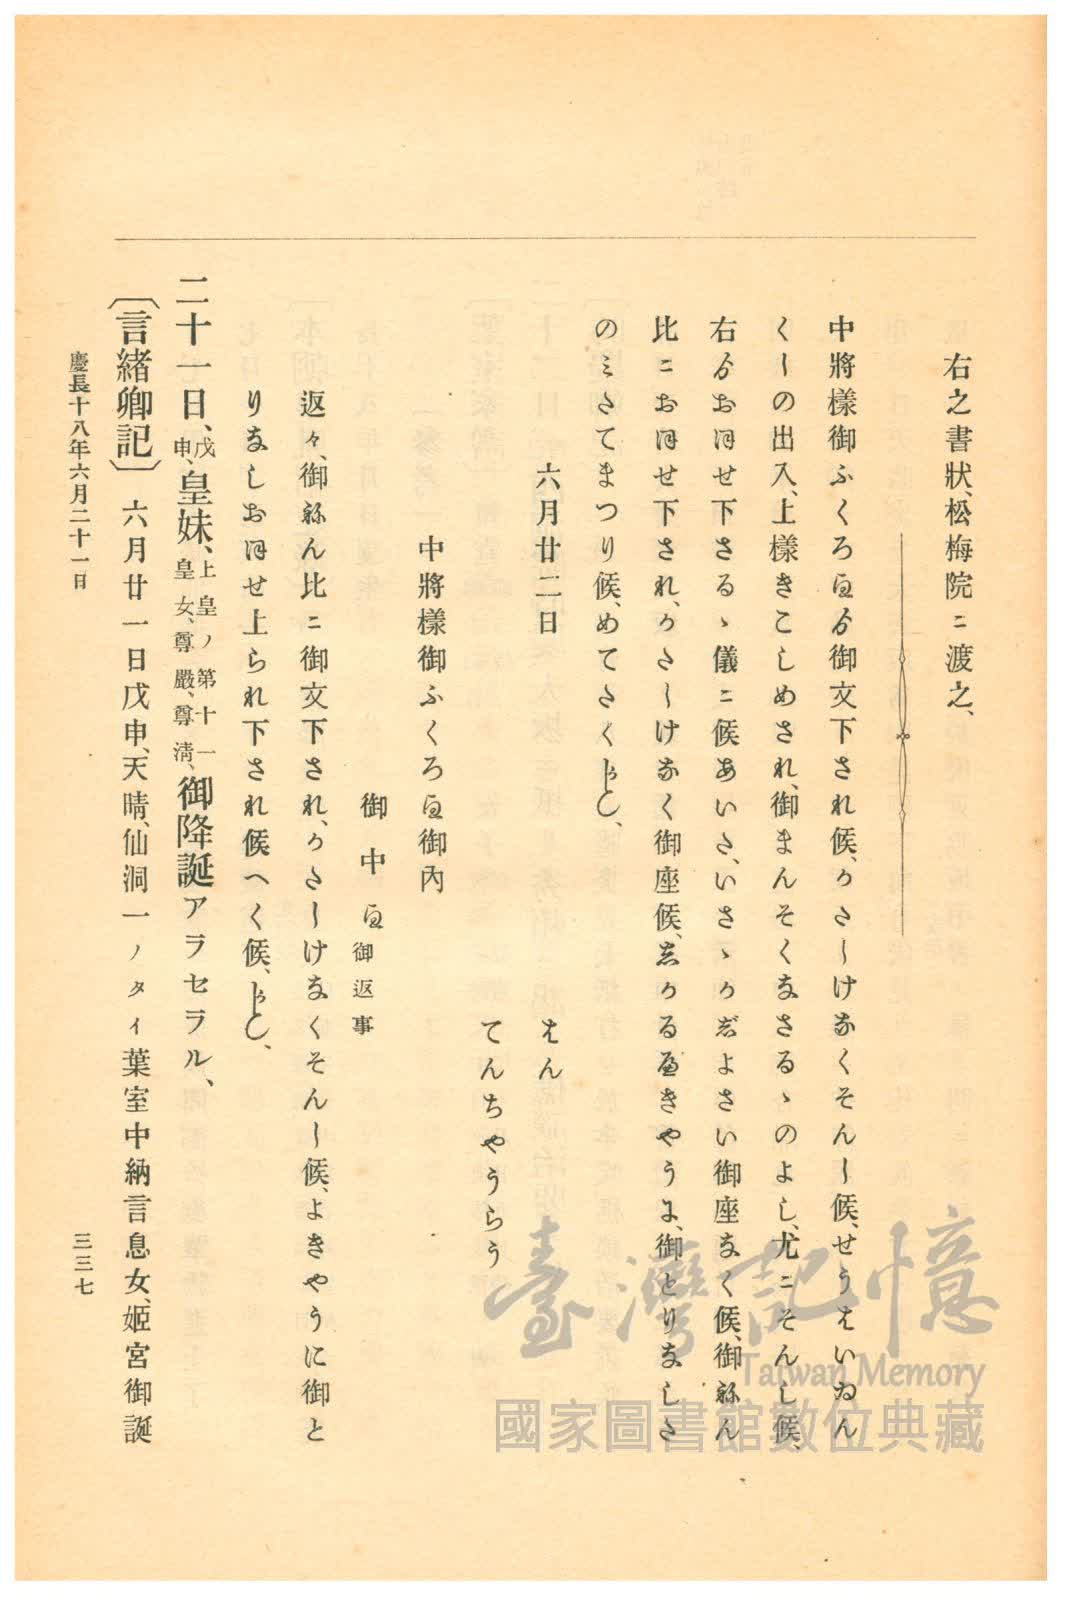 右之書狀、松梅院ニ渡之、
中將樣御ふくろゟ御文下され候、かたしけなくそんし候、せうはいゐん
くしの出入、上樣きこしめされ、御まんそくなさるゝのよし、尤ニそんし候、
右ゟおほせ下さるゝ儀ニ候あいた、いさゝかぶよさい御座なく候、御ねん
比ニおほせ下され、かたしけなく御座候、しかるへきやうに、御とりなした
のミたてまつり候、めてたくかしく、
六月廿二日
はん
てんちやうらう
中將樣御ふくろ御內
御中 御返事
返々、御ねん比ニ御文下され、かたしけなくそんし候、よきやうに御と
りなしおほせ上られ下され候へく候、かしく、
二十一日、戊申、皇妹、上皇ノ第十一皇女、尊嚴、尊淸、御降誕アラセラル、
〔言緖卿記〕 六月廿一日戊申、天晴、仙洞一ノタイ葉室中納言息女、姬宮御誕
慶長十八年六月二十一日
三三七
臺灣記憶
Taiwan Memory
國家圖書館數位典藏